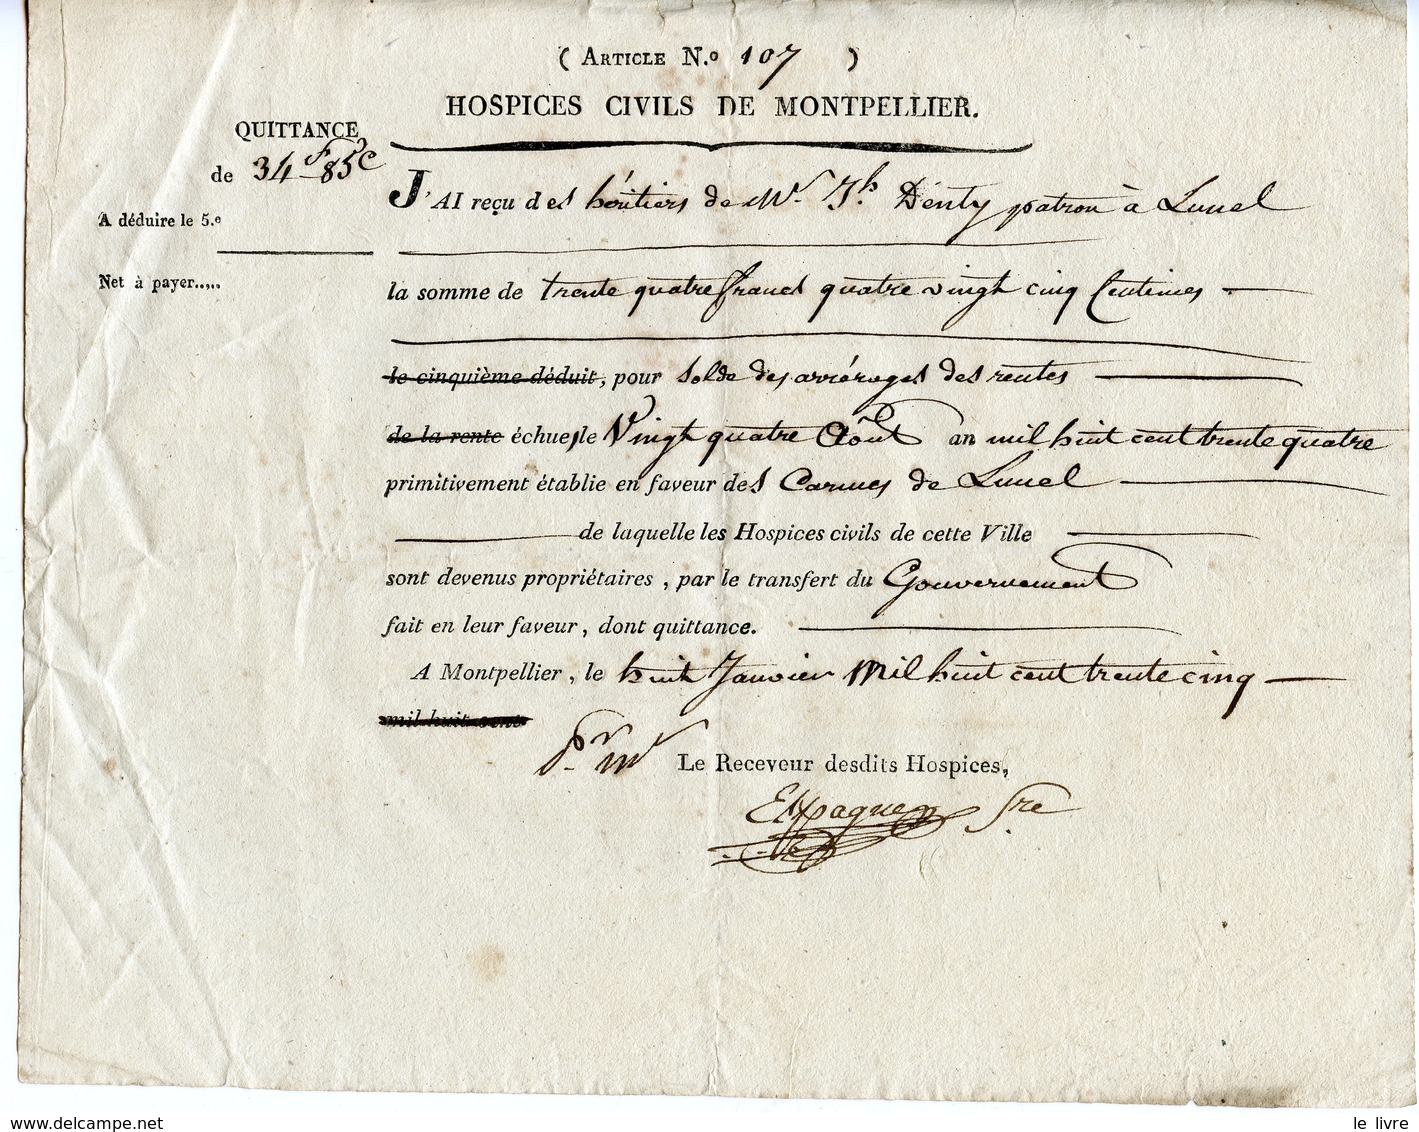 ( ARTICLE N.o 107 )
HOSPICES CIVILS DE MONTPELLIER.
QUITTANCE
de 34f 85c
A déduire le 5.e
Net à payer.....
J'AI reçu des héritiers de Mr. Jh. Denty patron à Lunel
la somme de trente quatre francs quatre vingt cinq Centimes
le cinquième déduit, pour solde des arrérages des rentes
de la rente échues le Vingt quatre Août an mil huit cent trente quatre
primitivement établie en faveur des Carmes de Lunel
de laquelle les Hospices civils de cette Ville
sont devenus propriétaires, par le transfert du Gouvernement
fait en leur faveur, dont quittance.
A Montpellier, le huit Janvier Mil huit cent trente cinq
mil huit cent
Pr. Mr Le Receveur desdits Hospices,
Espagne Sre
delcampe.net
le livre